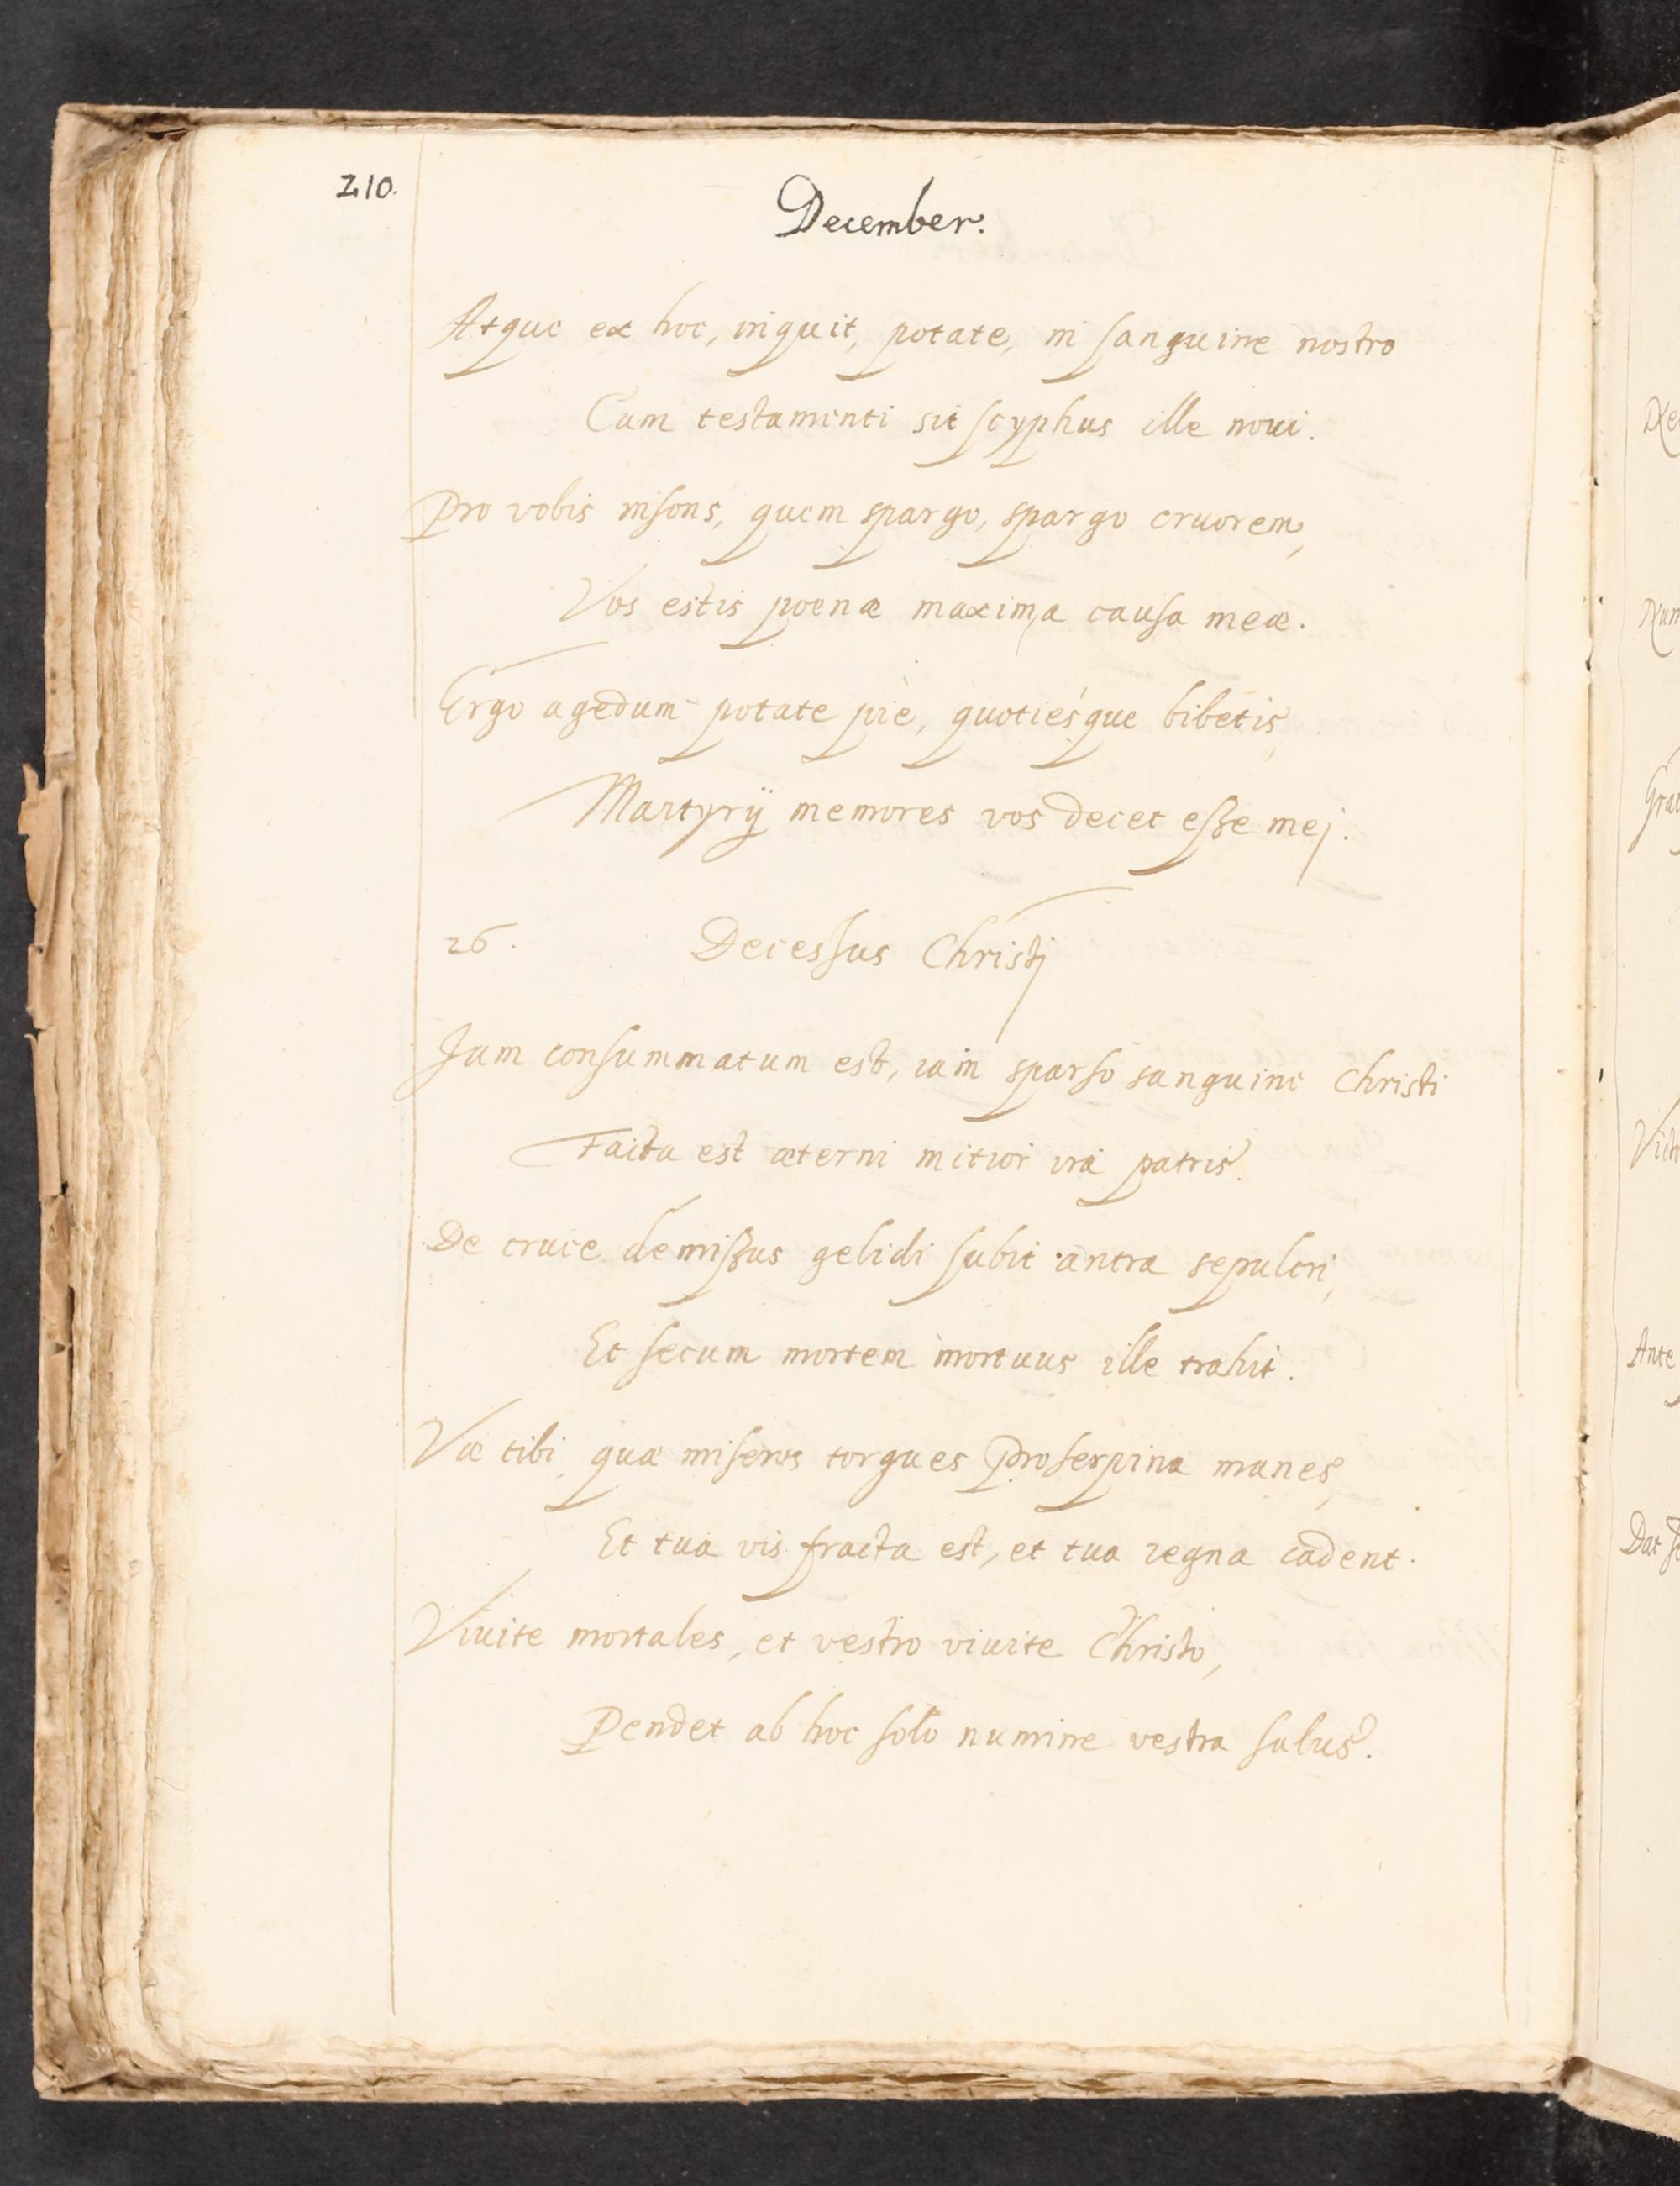 210.
December.
Atque ex hoc, inquit, potate, in sanguine nostro
Cum testamenti sit scyphus ille noui.
Pro vobis insons, quem spargo, spargo cruorem,
Vos estis poenæ maxima causa meæ.
Ergo agedum potate piè, quotiésque bibetis,
Martyrij memores vos decet esse mej.
26. Decessus Christj
Jam consummatum est, iam sparso sanguine Christi
Facta est æterni mitior ira patris.
De cruce demissus gelidi subit antra sepulcri,
Et secum mortem mortuus ille trahit.
Væ tibi, quæ miseros torques Proserpina manes,
Et tua vis fracta est, et tua regna cadent.
Viuite mortales, et vestro viuite Christo,
Pendet ab hoc solo numine vestra salus.